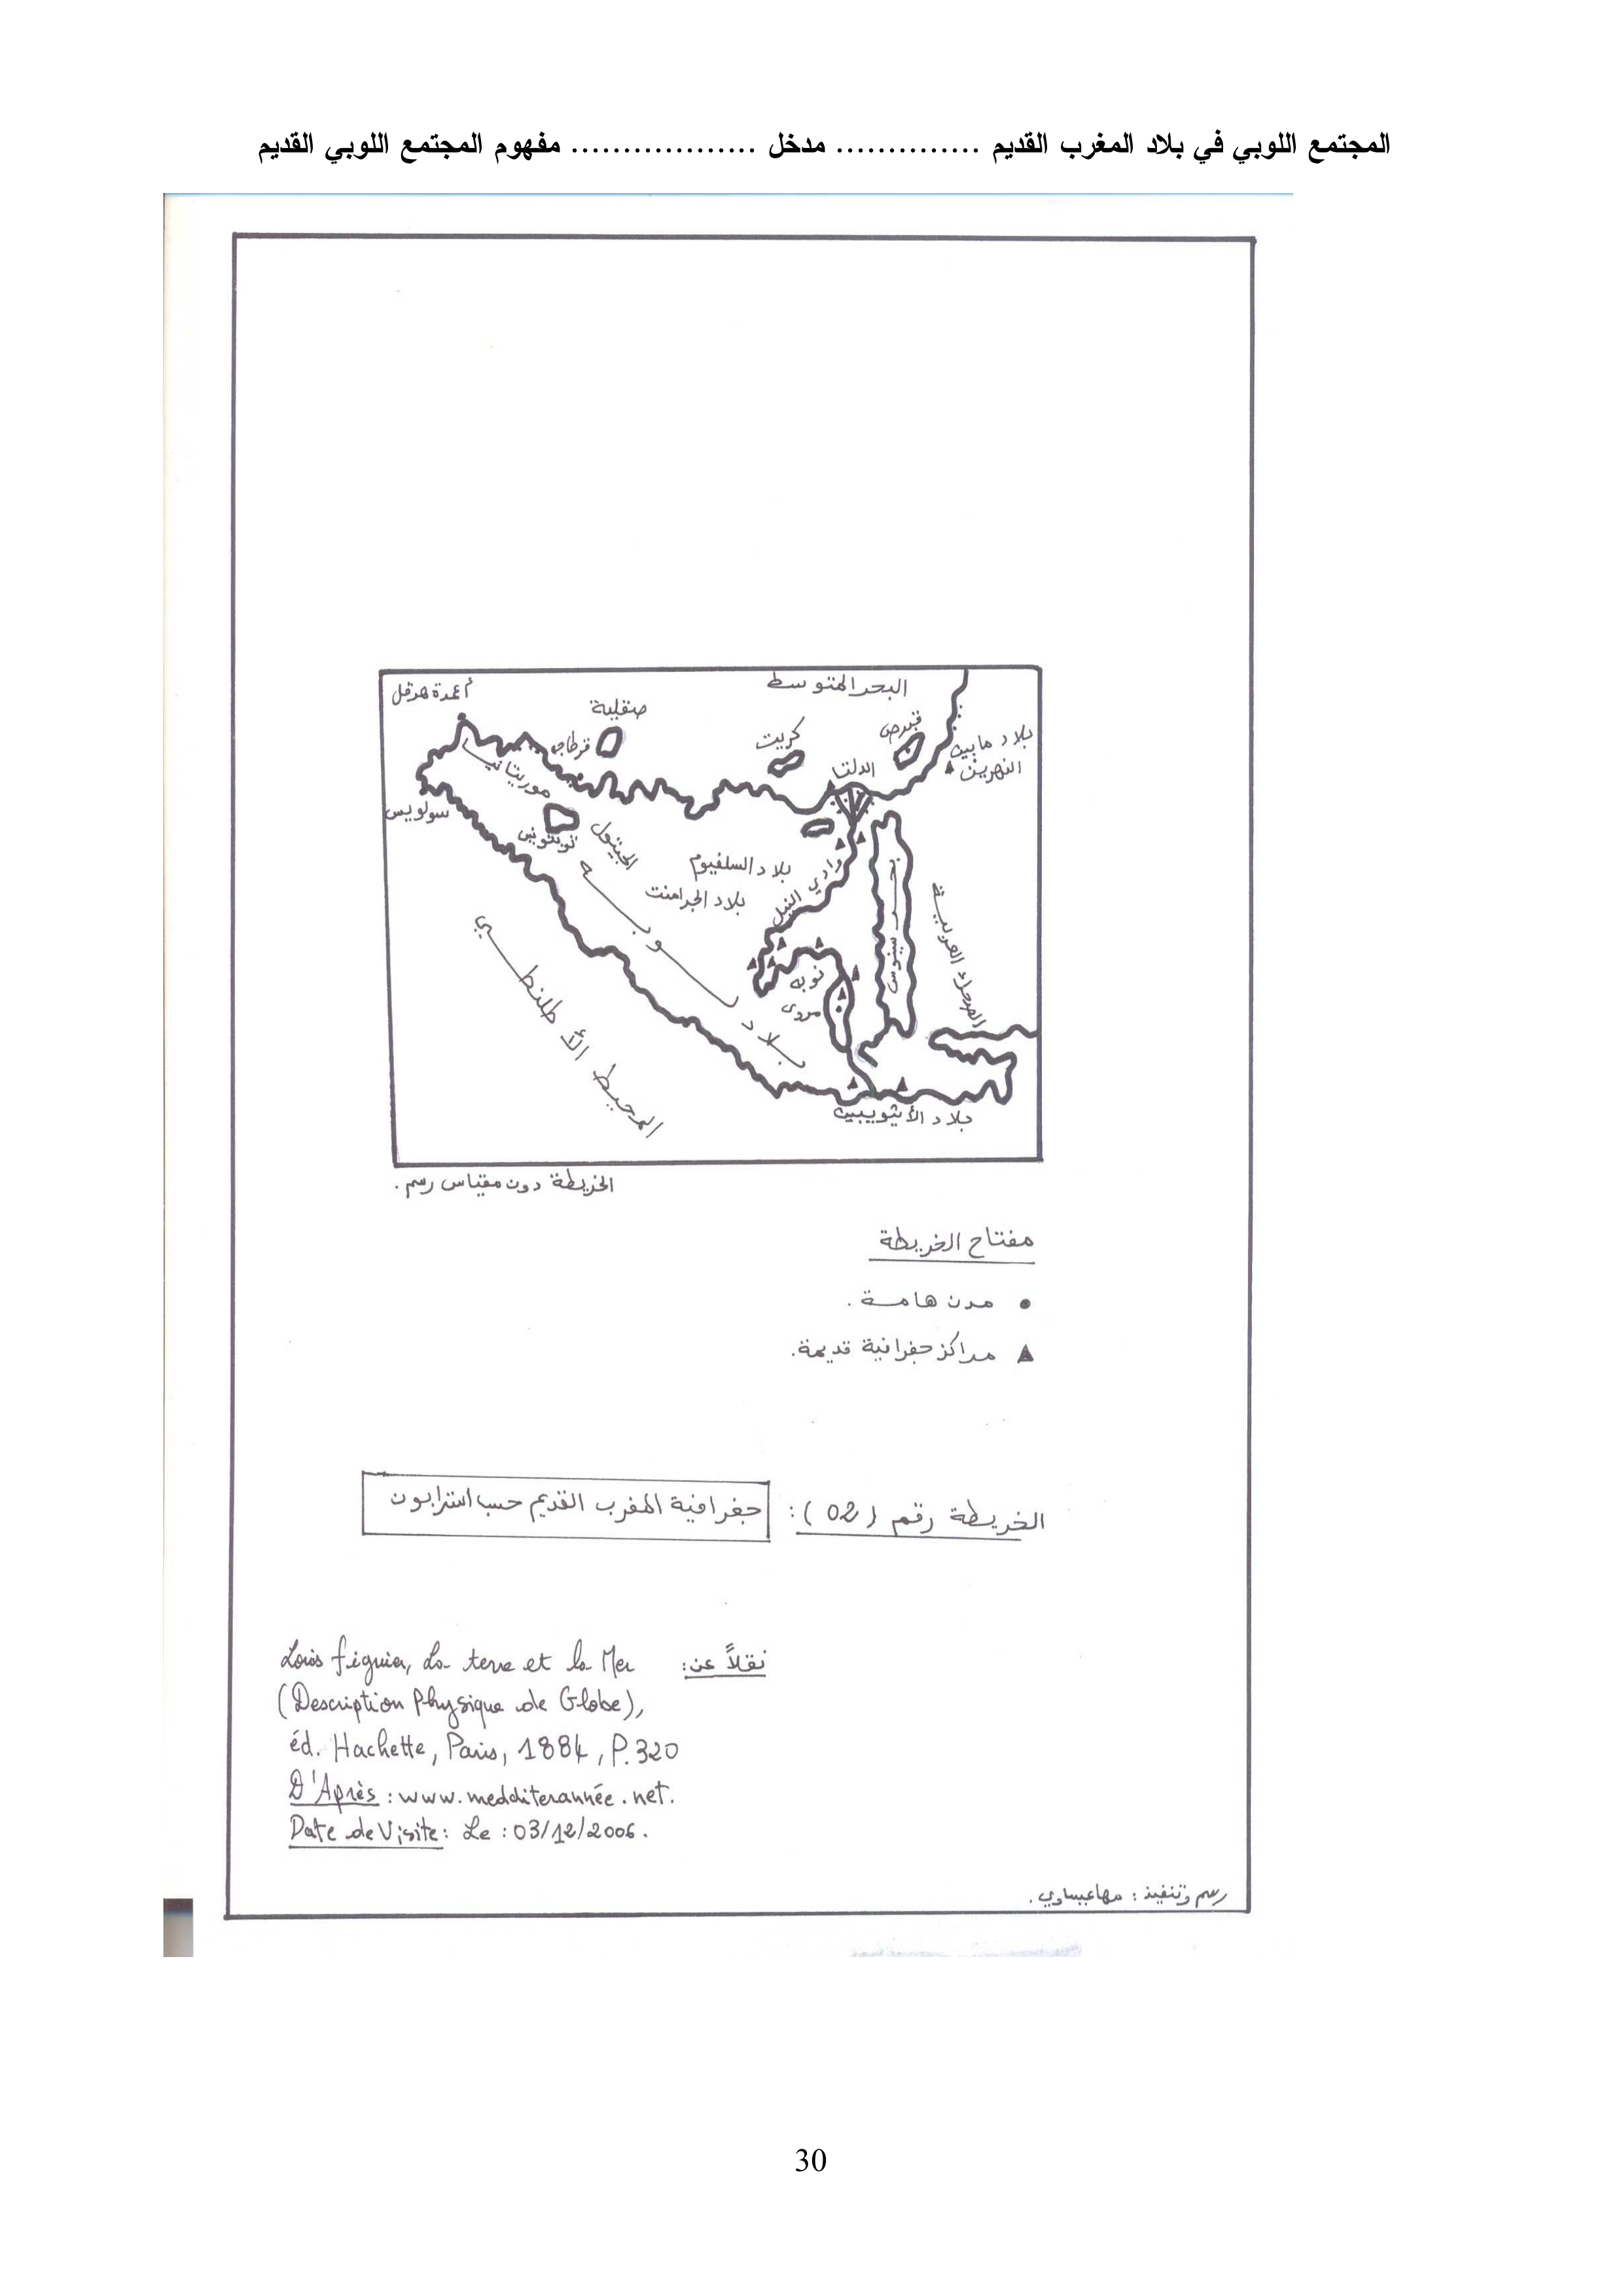 المجتمع اللوبي في بلاد المغرب القديم .............. مدخل .................. مفهوم المجتمع اللوبي القديم
البحر المتوسط
أعمدة هرقل
صقلية
قرطاج
كريت
قبرص
بلاد مابين
النهرين
الدلتا
موريتانيا
سولويس
الجيتول
بلاد السلفيوم
بلاد الجرامنت
وادي النيل
بحر
الصحراء العربية
نوبة
مروى
بلاد لوبة
المحيط الأطلنطي
بلاد الأثيوبيين
الخريطة دون مقياس رسم.
مفتاح الخريطة
● مدن هامة.
▲ مراكز جغرافية قديمة.
الخريطة رقم (02): جغرافية المغرب القديم حسب استرابون
نقلاً عن: Louis figuier, La terre et la Mer
(Description Physique de Globe),
éd. Hachette, Paris, 1884, P.320
D'Après : www.medditerannée.net.
Date de Visite : Le : 03/12/2006.
رسم وتنفيذ : مها عيساوي.
30